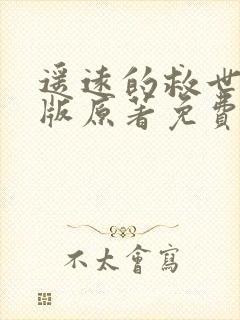 遥远的救世
版原著免費
不太會寫